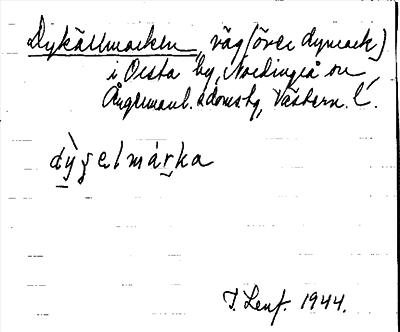 Dykällmarken, väg (över dymark)
i Orsta by, Nordingrå sn,
Ångermanl. s domsbg, Västern. l.
dỳgelmárka
T. Lenf. 1944.